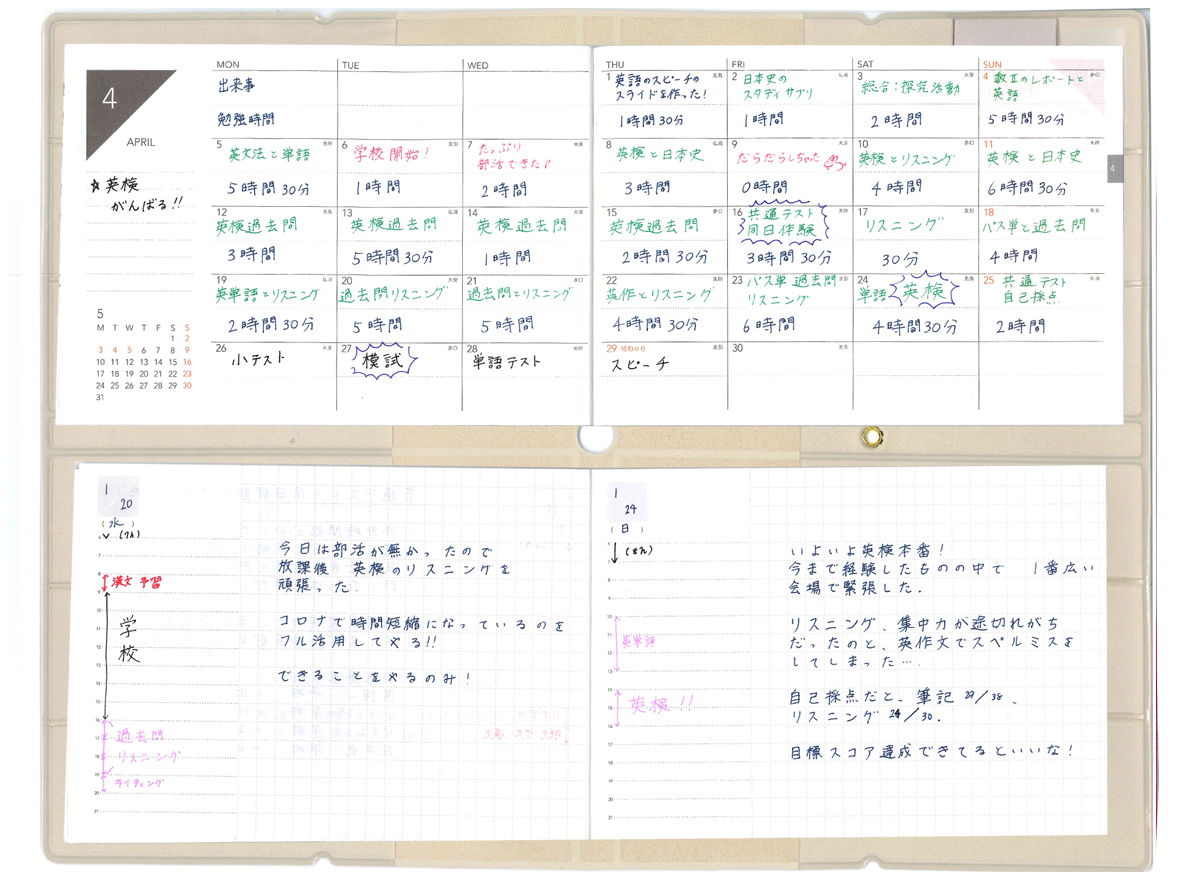 4
APRIL
☆英検
がんばる!!
5
M T W T F S S
1 2
3 4 5 6 7 8 9
10 11 12 13 14 15 16
17 18 19 20 21 22 23
24 25 26 27 28 29 30
31
MON TUE WED THU FRI SAT SUN
出来事
勉強時間
1 先負
英語のスピーチの
スライドを作った!
1時間30分
2 仏滅
日本史の
スタディサプリ
1時間
3 大安
総合:探究活動
2時間
4 赤口
数Ⅱのレポートと
英語
5時間30分
5 先勝
英文法と単語
5時間30分
6 友引
学校開始!
1時間
7 先負
たっぷり
部活できた♪
2時間
8 仏滅
英検と日本史
3時間
9 大安
だらだらしちゃった
0時間
10 赤口
英検とリスニング
4時間
11 先勝
英検と日本史
6時間30分
12 先負
英検過去問
3時間
13 仏滅
英検過去問
5時間30分
14 大安
英検過去問
1時間
15 赤口
英検過去問
2時間30分
16 先勝
共通テスト
同日体験
3時間30分
17 友引
リスニング
30分
18 先負
パス単と過去問
4時間
19 仏滅
英単語とリスニング
2時間30分
20 大安
過去問リスニング
5時間
21 赤口
過去問とリスニング
5時間
22 先勝
英作とリスニング
4時間30分
23 友引
パス単 過去問
リスニング
6時間
24 先負
単語 英検
4時間30分
25 仏滅
共通テスト
自己採点
2時間
26 大安
小テスト
27 赤口
模試
28 先勝
単語テスト
29 昭和の日 友引
スピーチ
30 先負
4
1
20
(水)
漢文 予習
学
校
過去問
リスニング
ライティング
今日は部活が無かったので
放課後 英検のリスニングを
頑張った.
コロナで時間短縮になっているのを
フル活用してやる!!
できることをやるのみ!
1
24
(日)
英単語
英検!!
いよいよ英検本番!
今まで経験したものの中で 1番広い
会場で緊張した.
リスニング、集中力が途切れがち
だったのと、英作文でスペルミスを
してしまった….
自己採点だと、筆記 29/38、
リスニング 24/30.
目標スコア達成できてるといいな!